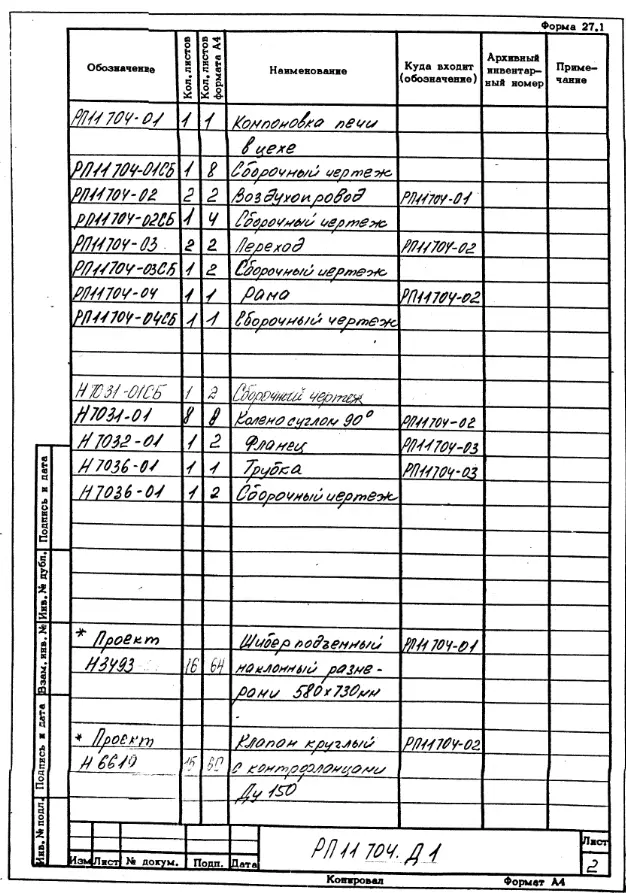 Форма 27.1
Обозначение Кол. листов Кол. листов формата А4 Наименование Куда входит (обозначение) Архивный инвентарный номер Примечание
РП11704-01 1 1 Компоновка печи
в цехе
РП11704-01СБ 1 8 Сборочный чертеж
РП11704-02 2 2 Воздухопровод РП11704-01
РП11704-02СБ 1 4 Сборочный чертеж
РП11704-03 2 2 Переход РП11704-02
РП11704-03СБ 1 2 Сборочный чертеж
РП11704-04 1 1 Рама РП11704-02
РП11704-04СБ 1 1 Сборочный чертеж
Н7031-01СБ 1 2 Сборочный чертеж
Н7031-01 8 8 Колено с углом 90° РП11704-02
Н7032-01 1 2 Фланец РП11704-03
Н7036-01 1 1 Трубка РП11704-03
Н7036-01 1 2 Сборочный чертеж
* Проект Шибер подъемный РП11704-01
Н3493 16 64 наклонный разме-
рами 580х730мм
* Проект Клапан круглый РП11704-02
Н6619 15 с контрфланцами
Ду 150
Инв. № подл. Подпись и дата Взам. инв. № Инв. № дубл. Подпись и дата
РП11704. Д1
Лист
2
Изм Лист № докум. Подп. Дата
Копировал Формат А4